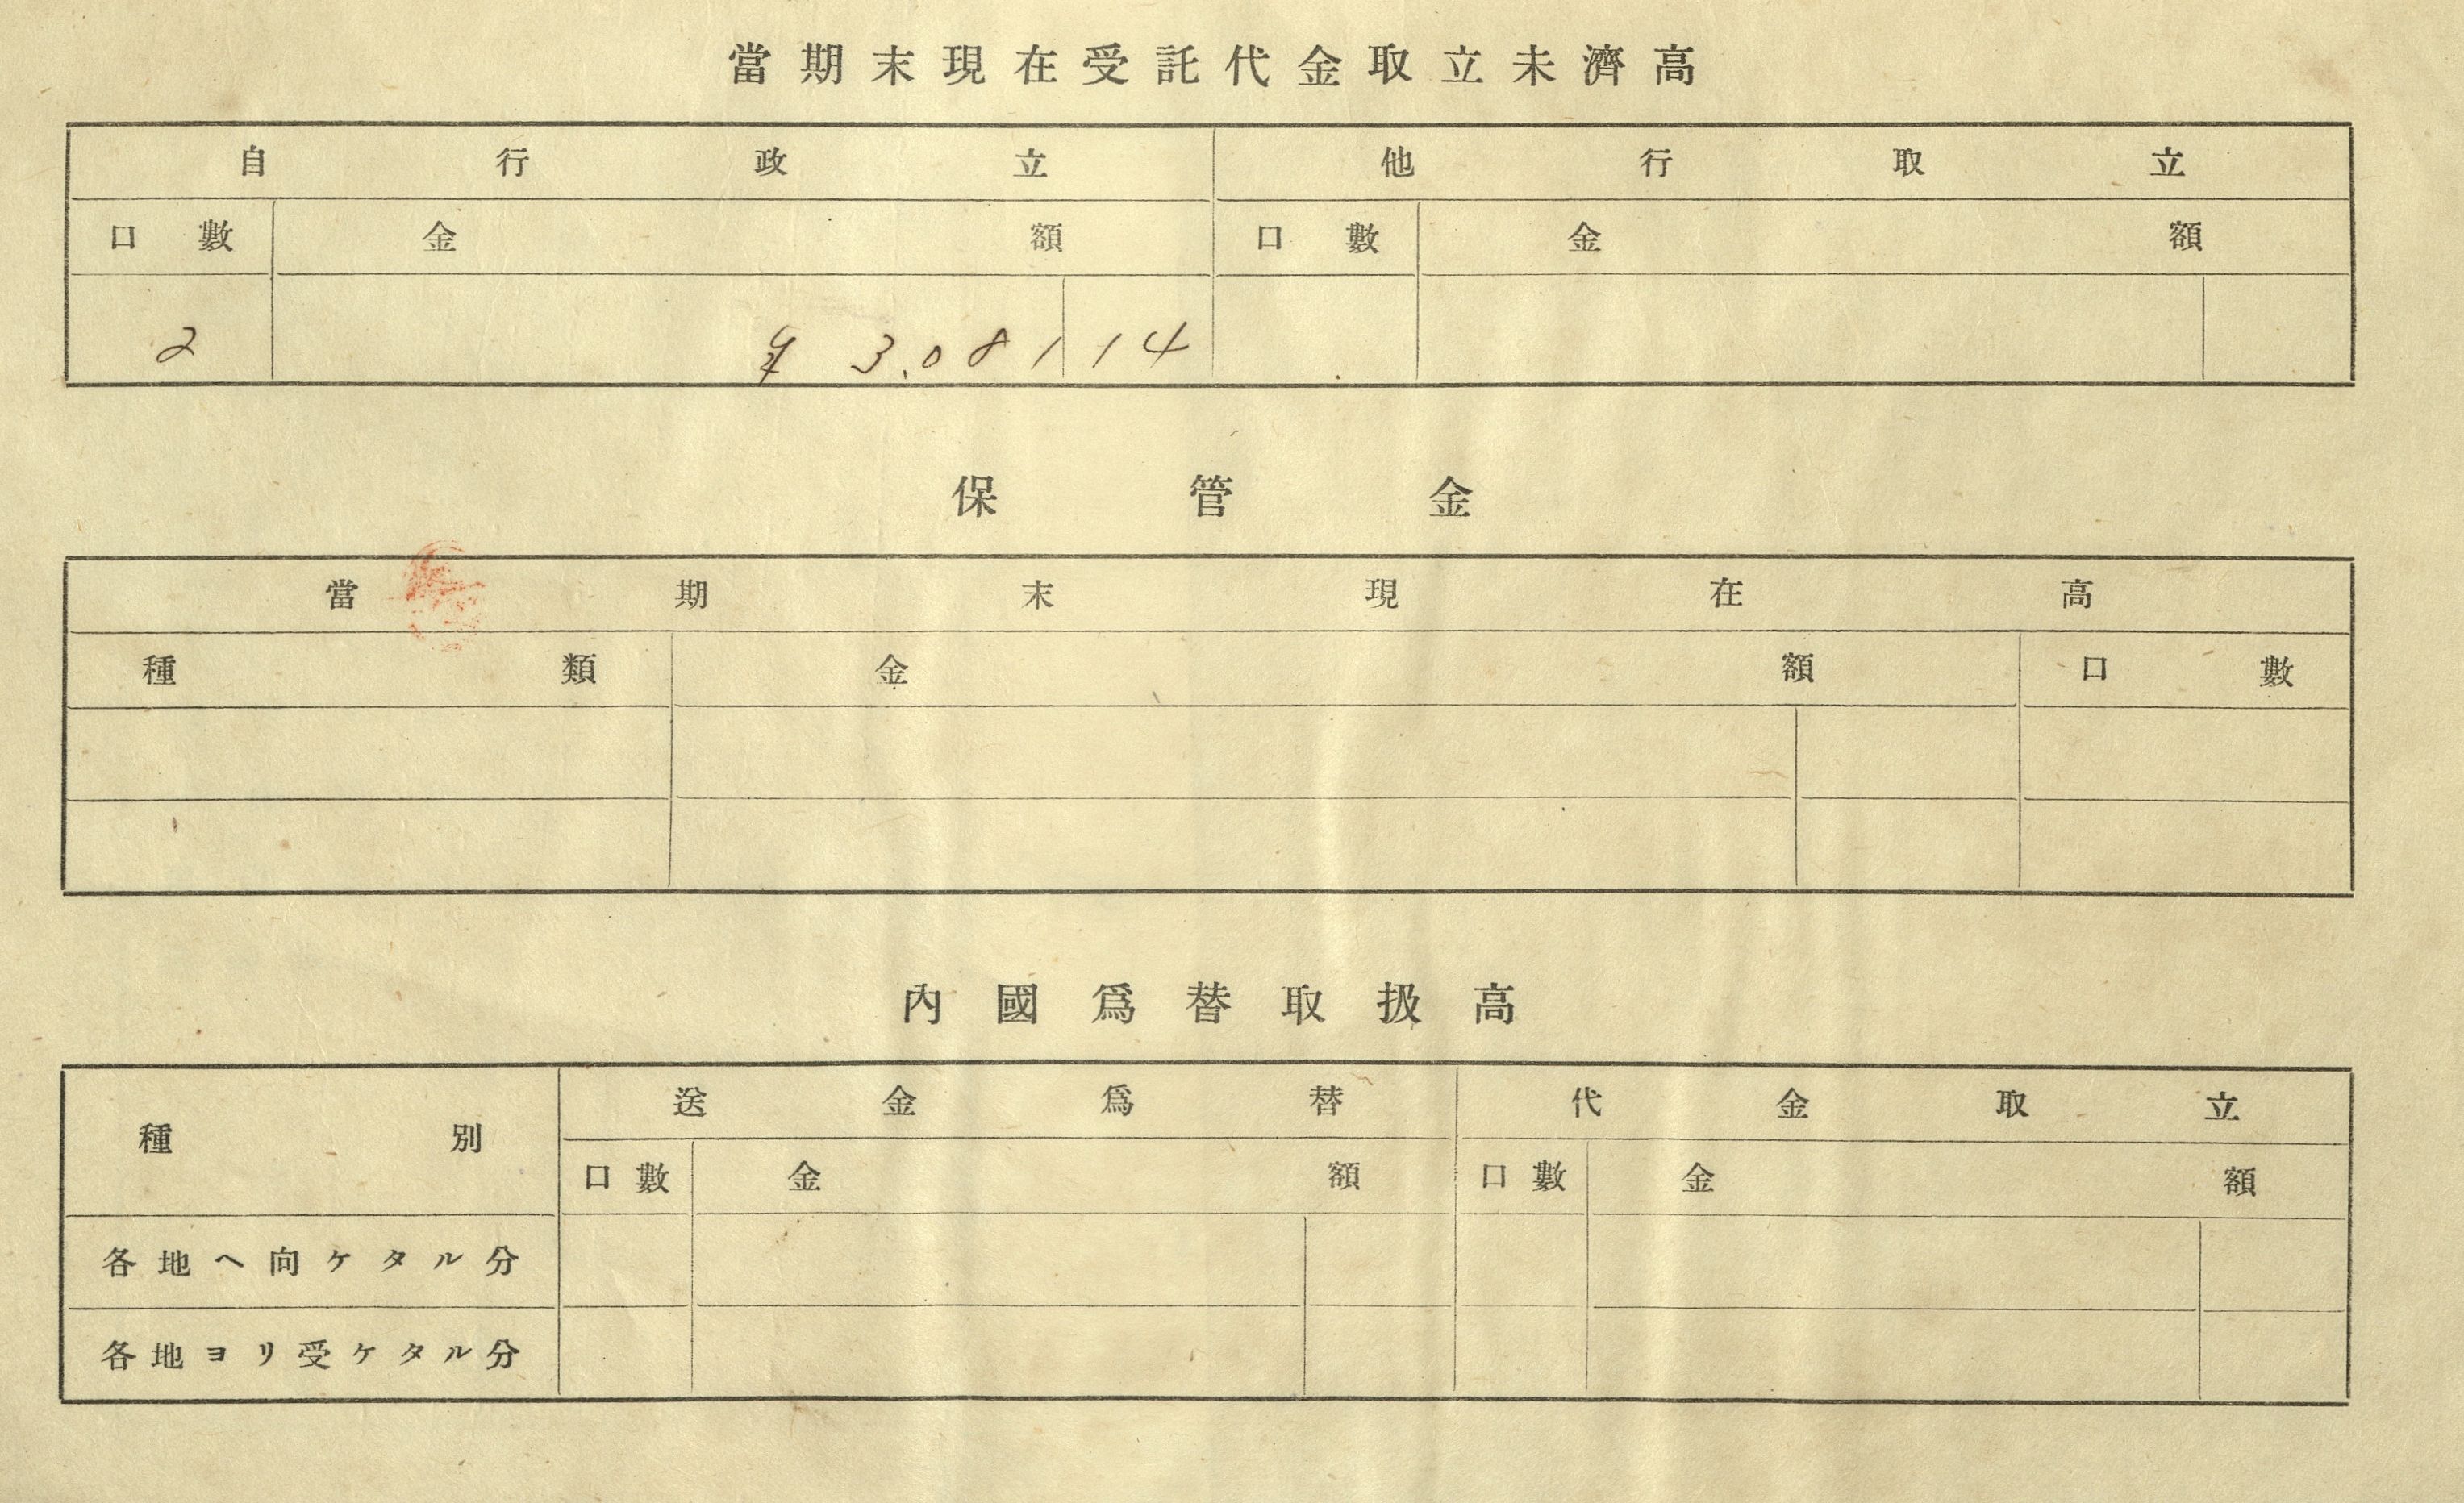 當期末現在受託代金取立未濟高
自行政立 他行取立
口數 金額 口數 金額
2 ¥ 3.081 14
保管金
當期末現在高
種類 金額 口數
內國爲替取扱高
種別 送金爲替 代金取立
口數 金額 口數 金額
各地ヘ向ケタル分
各地ヨリ受ケタル分